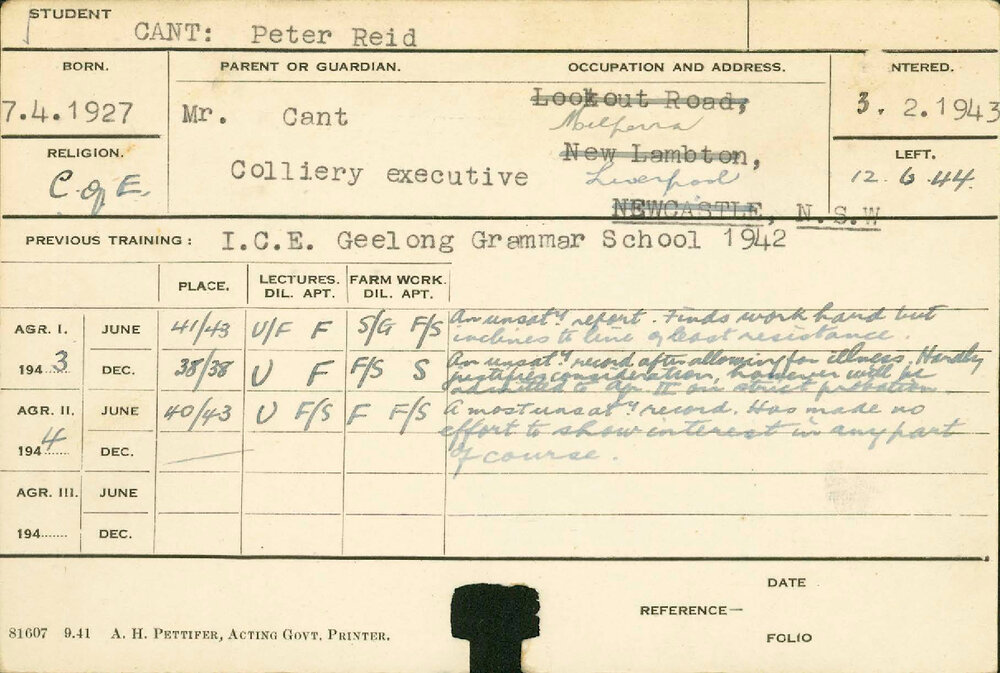 STUDENT
CANT: Peter Reid
BORN. PARENT OR GUARDIAN. OCCUPATION AND ADDRESS. NTERED.
7.4.1927 Mr. Cant Lookout Road, 3. 2.1943
Milperra
RELIGION. New Lambton, LEFT.
C of E. Colliery executive Liverpool 12 6 44.
NEWCASTLE, N.S.W
PREVIOUS TRAINING: I.C.E. Geelong Grammar School 1942
PLACE. LECTURES. FARM WORK.
DIL. APT. DIL. APT.
AGR. I. JUNE 41/43 U/F F S/G F/S An unsaty report. Finds work hard but
inclines to line of least resistance.
1943 DEC. 38/38 U F F/S S An unsaty record after allowing for illness. Hardly
justifies consideration, however will be
admitted to Agr. II on strict probation
AGR. II. JUNE 40/43 U F/S F F/S A most unsaty record. Has made no
effort to show interest in any part
1944 DEC. of course.
AGR. III. JUNE
194....... DEC.
DATE
REFERENCE—
FOLIO
81607 9.41 A. H. PETTIFER, ACTING GOVT. PRINTER.